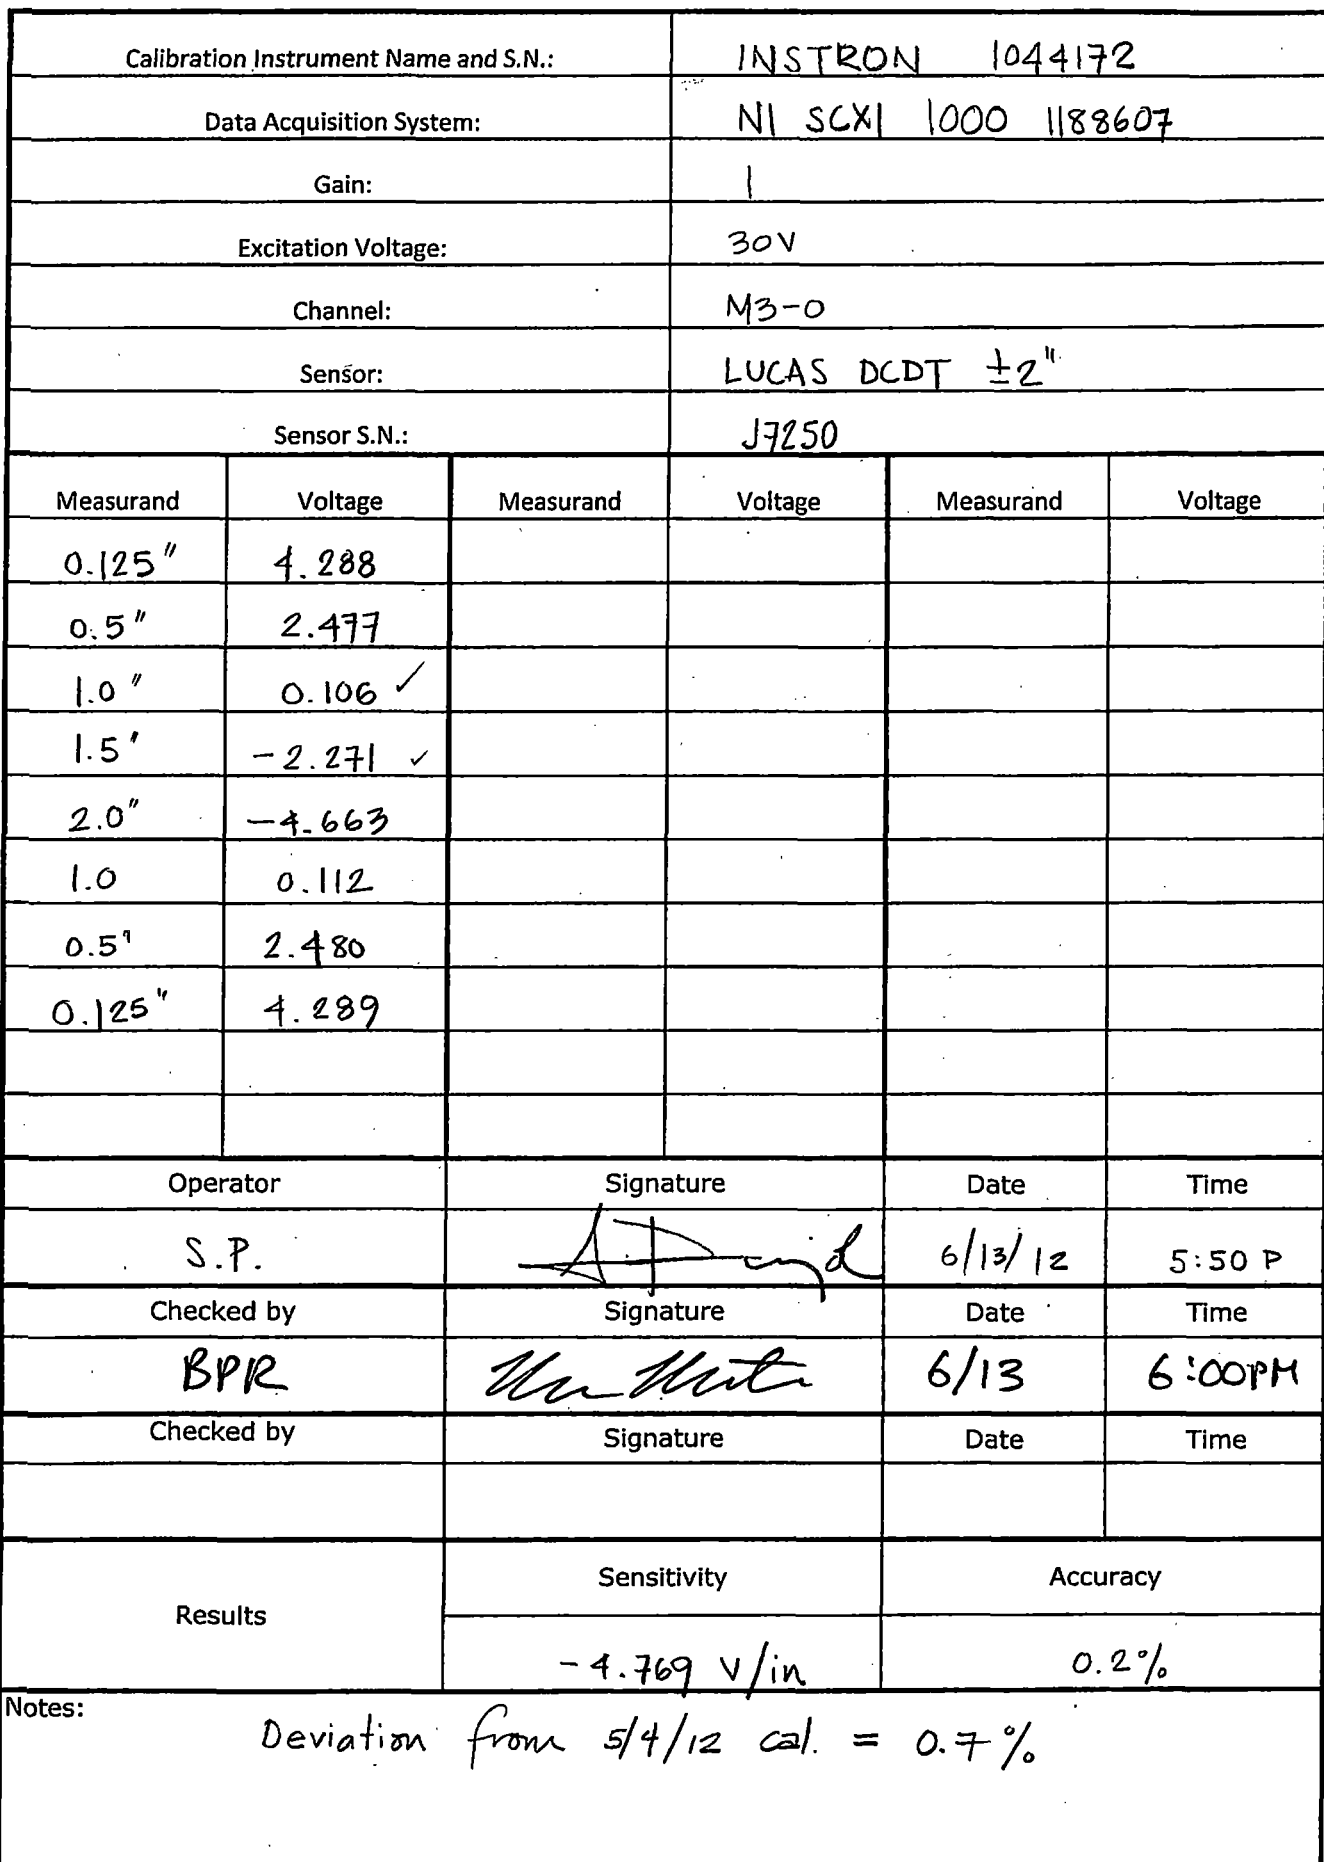 Calibration Instrument Name and S.N.: INSTRON 1044172
Data Acquisition System: NI SCXI 1000 1188607
Gain: 1
Excitation Voltage: 30V
Channel: M3-0
Sensor: LUCAS DCDT ±2"
Sensor S.N.: J7250
Measurand Voltage Measurand Voltage Measurand Voltage
0.125" 4.288
0.5" 2.477
1.0" 0.106 ✓
1.5' -2.271 ✓
2.0" -4.663
1.0 0.112
0.5' 2.480
0.125" 4.289
Operator Signature Date Time
S.P. 6/13/12 5:50 P
Checked by Signature Date Time
BPR 6/13 6:00PM
Checked by Signature Date Time
Results Sensitivity Accuracy
-4.769 V/in 0.2%
Notes:
Deviation from 5/4/12 cal. = 0.7%